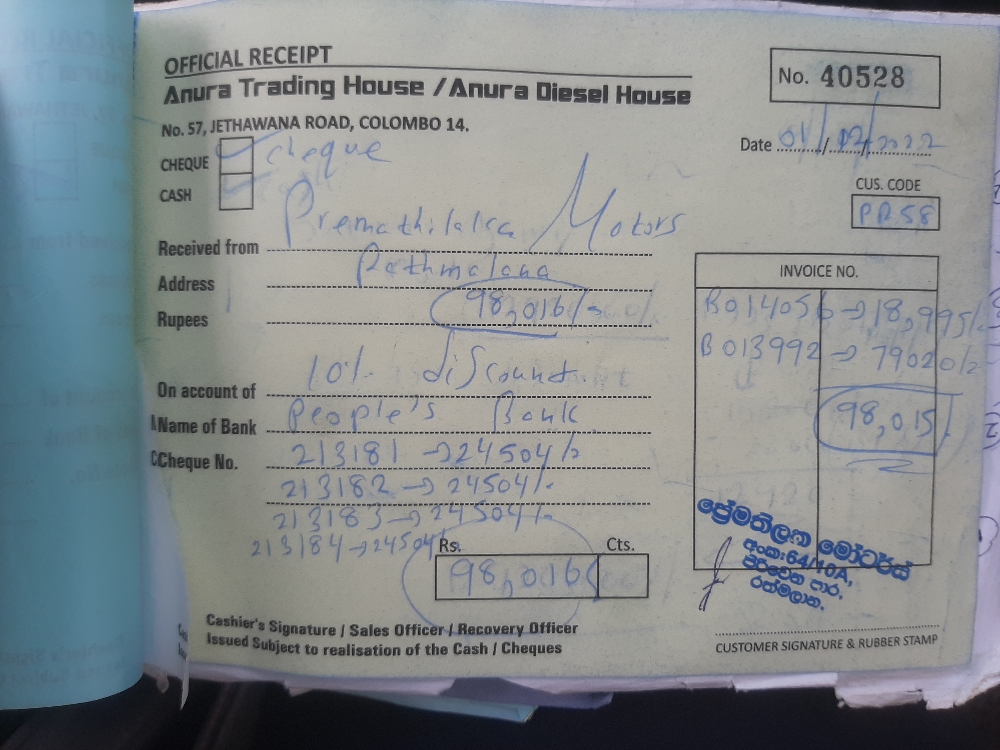 OFFICIAL RECEIPT
Anura Trading House / Anura Diesel House
No. 57, JETHAWANA ROAD, COLOMBO 14.
No. 40528
Date 01/02/2022
CHEQUE cheque
CASH
CUS. CODE
PR58
Received from Premathilaka Motors
Address Rathmalana
Rupees 98,016/=
On account of 10% discount.
Name of Bank People's Bank
Cheque No. 213181 → 24504/=
213182 → 24504/-
213183 → 24504/-
213184 → 24504/-
Rs. Cts.
98,016/
INVOICE NO.
B014056 → 18,995/-
B013992 → 79020/=
98,015/
ප්‍රේමතිලක මෝටර්ස්
අංක:64/10A,
පිරිවෙන පාර,
රත්මලාන.
Cashier's Signature / Sales Officer / Recovery Officer
Issued Subject to realisation of the Cash / Cheques
CUSTOMER SIGNATURE & RUBBER STAMP